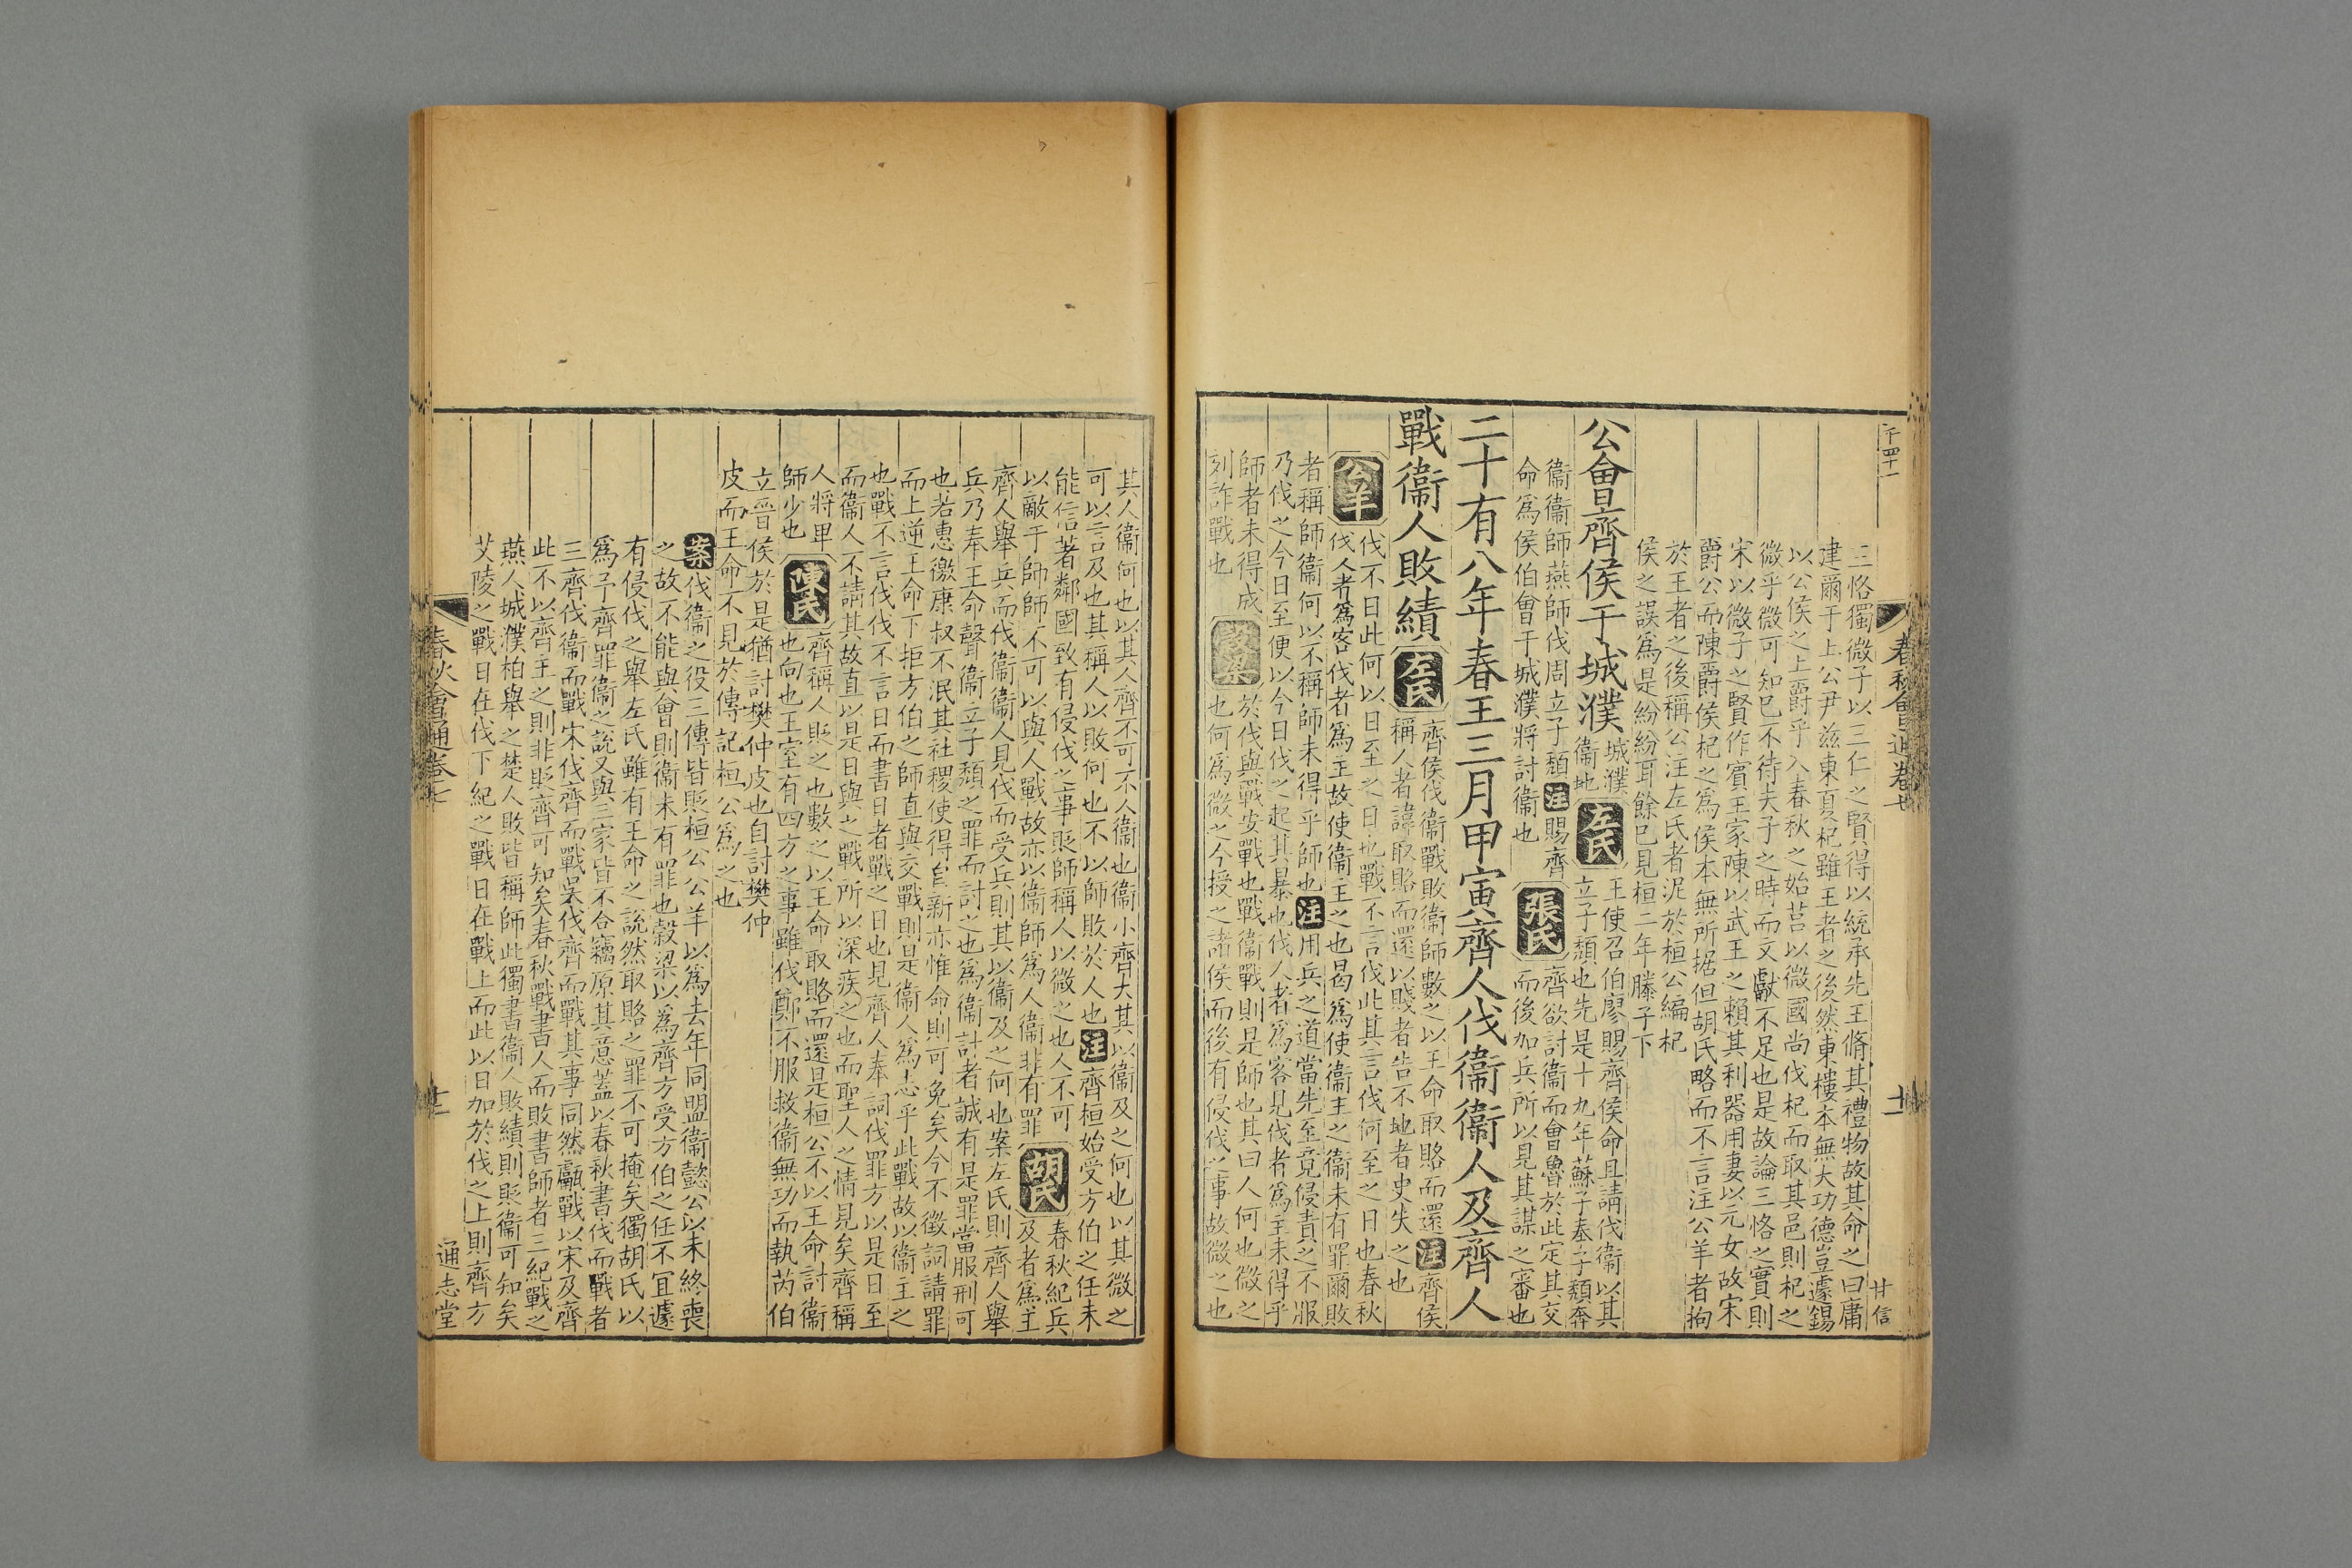 三恪獨微子以三仁之賢得以統承先王脩其禮物故其命之曰庸
建爾于上公尹兹東夏杞雖王者之後然東樓本無大功德豈遽錫
以公侯之上爵乎入春秋之始莒以微國尚伐杞而取其邑則杞之
微乎微可知已不待夫子之時而文獻不足也是故論三恪之實則
宋以微子之賢作賓王家陳以武王之賴其利器用妻以元女故宋
爵公而陳爵侯杞之爲侯本無所据但胡氏略而不言注公羊者拘
於王者之後稱公注左氏者泥於桓公編杞
侯之誤爲是紛紛耳餘已見桓二年滕子下
公會齊侯于城濮
城濮
衞地
左氏
王使召伯廖賜齊侯命且請伐衞以其
立子頽也先是十九年蘇子奉子頽奔
衞衞師燕師伐周立子頽注賜齊
命爲侯伯會于城濮將討衞也
張氏
齊欲討衞而會魯於此定其交
而後加兵所以見其謀之審也
二十有八年春王三月甲寅齊人伐衞衞人及齊人
戰衞人敗績
左氏
齊侯伐衞戰敗衞師數之以王命取賂而還注齊侯
稱人者諱取賂而還以賤者告不地者史失之也
公羊
伐不日此何以日至之日也戰不言伐此其言伐何至之日也春秋
伐人者爲客伐者爲主故使衞主之也曷爲使衞主之衞未有罪爾敗
者稱師衞何以不稱師未得乎師也注用兵之道當先至竟侵責之不服
乃伐之今日至便以今日伐之起其暴也伐人者爲客見伐者爲主未得乎
師者未得成
列詐戰也
穀梁
於伐與戰安戰也戰衞戰則是師也其曰人何也微之
也何爲微之今授之諸侯而後有侵伐之事故微之也
春秋會通卷七
十一
甘信
其人衞何也以其人齊不可不人衞也衞小齊大其以衞及之何也以其微之
可以言及也其稱人以敗何也不以師敗於人也注齊桓始受方伯之任未
能信著鄰國致有侵伐之事貶師稱人以微之也人不可
以敵于師師不可以與人戰故亦以衞師爲人衞非有罪
胡氏
春秋紀兵
及者爲主
齊人舉兵而伐衞衞人見伐而受兵則其以衞及之何也案左氏則齊人舉
兵乃奉王命聲衞立子頽之罪而討之也爲衞計者誠有是罪當服刑可
也若惠徼康叔不泯其社稷使得自新亦惟命則可免矣今不徵詞請罪
而上逆王命下拒方伯之師直與交戰則是衞人爲志乎此戰故以衞主之
也戰不言伐伐不言日而書日者戰之日也見齊人奉詞伐罪方以是日至
而衞人不請其故直以是日與之戰所以深疾之也而聖人之情見矣齊稱
人將卑
師少也
陳氏
齊稱人貶之也數之以王命取賂而還是桓公不以王命討衞
也向也王室有四方之事雖伐鄭不服救衞無功而執芮伯
立晉侯於是猶討樊仲皮也自討樊仲
皮而王命不見於傳記桓公爲之也
案伐衞之役三傳皆貶桓公公羊以爲去年同盟衞懿公以未終喪
之故不能與會則衞未有罪也穀梁以爲齊方受方伯之任不宜遽
有侵伐之舉左氏雖有王命之說然取賂之罪不可掩矣獨胡氏以
爲予齊罪衞之說又與三家皆不合竊原其意蓋以春秋書伐而戰者
三齊伐衞而戰宋伐齊而戰吳伐齊而戰其事同然甗戰以宋及齊
此不以齊主之則非貶齊可知矣春秋戰書人而敗書師者三紀戰之
燕人城濮柏舉之楚人敗皆稱師此獨書衞人敗績則貶衞可知矣
艾陵之戰日在伐下紀之戰日在戰上而此以日加於伐之上則齊方
春秋會通卷七
十二
通志堂